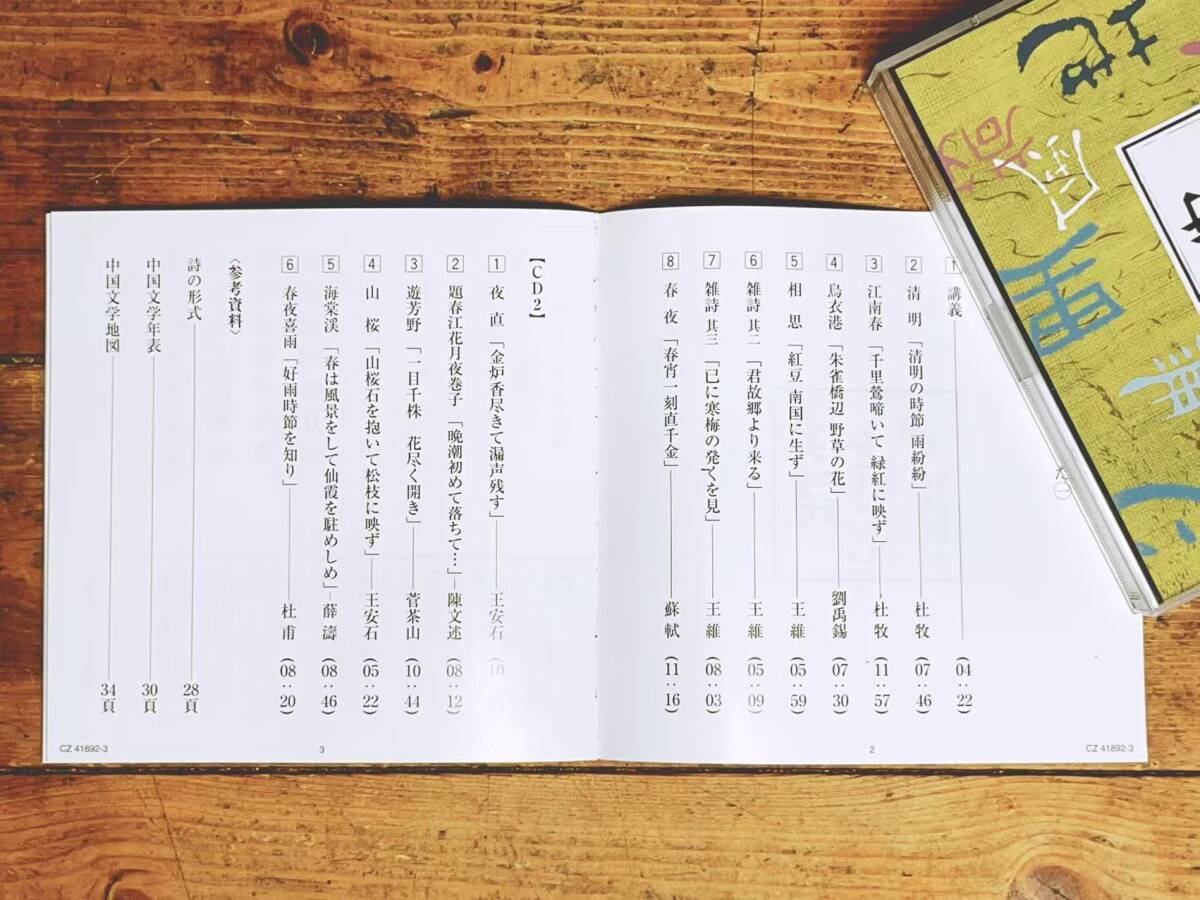 1 講義 (04:22)
2 清明「清明の時節 雨紛紛」 杜牧 (07:46)
3 江南春「千里鶯啼いて 緑紅に映ず」 杜牧 (11:57)
4 烏衣港「朱雀橋辺 野草の花」 劉禹錫 (07:30)
5 相思「紅豆 南国に生ず」 王維 (05:59)
6 雑詩 其二「君故郷より来る」 王維 (05:09)
7 雑詩 其三「已に寒梅の発くを見」 王維 (08:03)
8 春夜「春宵一刻直千金」 蘇軾 (11:16)
2
CZ 41892-3
【CD2】
1 夜直「金炉香尽きて漏声残す」 王安石
2 題春江花月夜巻子「晩潮初めて落ちて…」 陳文述 (08:12)
3 遊芳野「一目千株 花尽く開き」 菅茶山 (10:44)
4 山桜「山桜石を抱いて松枝に映ず」 王安石 (05:22)
5 海棠渓「春は風景をして仙霞を駐めしめ」 薛濤 (08:46)
6 春夜喜雨「好雨時節を知り」 杜甫 (08:20)
〈参考資料〉
詩の形式 28頁
中国文学年表 30頁
中国文学地図 34頁
3
CZ 41892-3